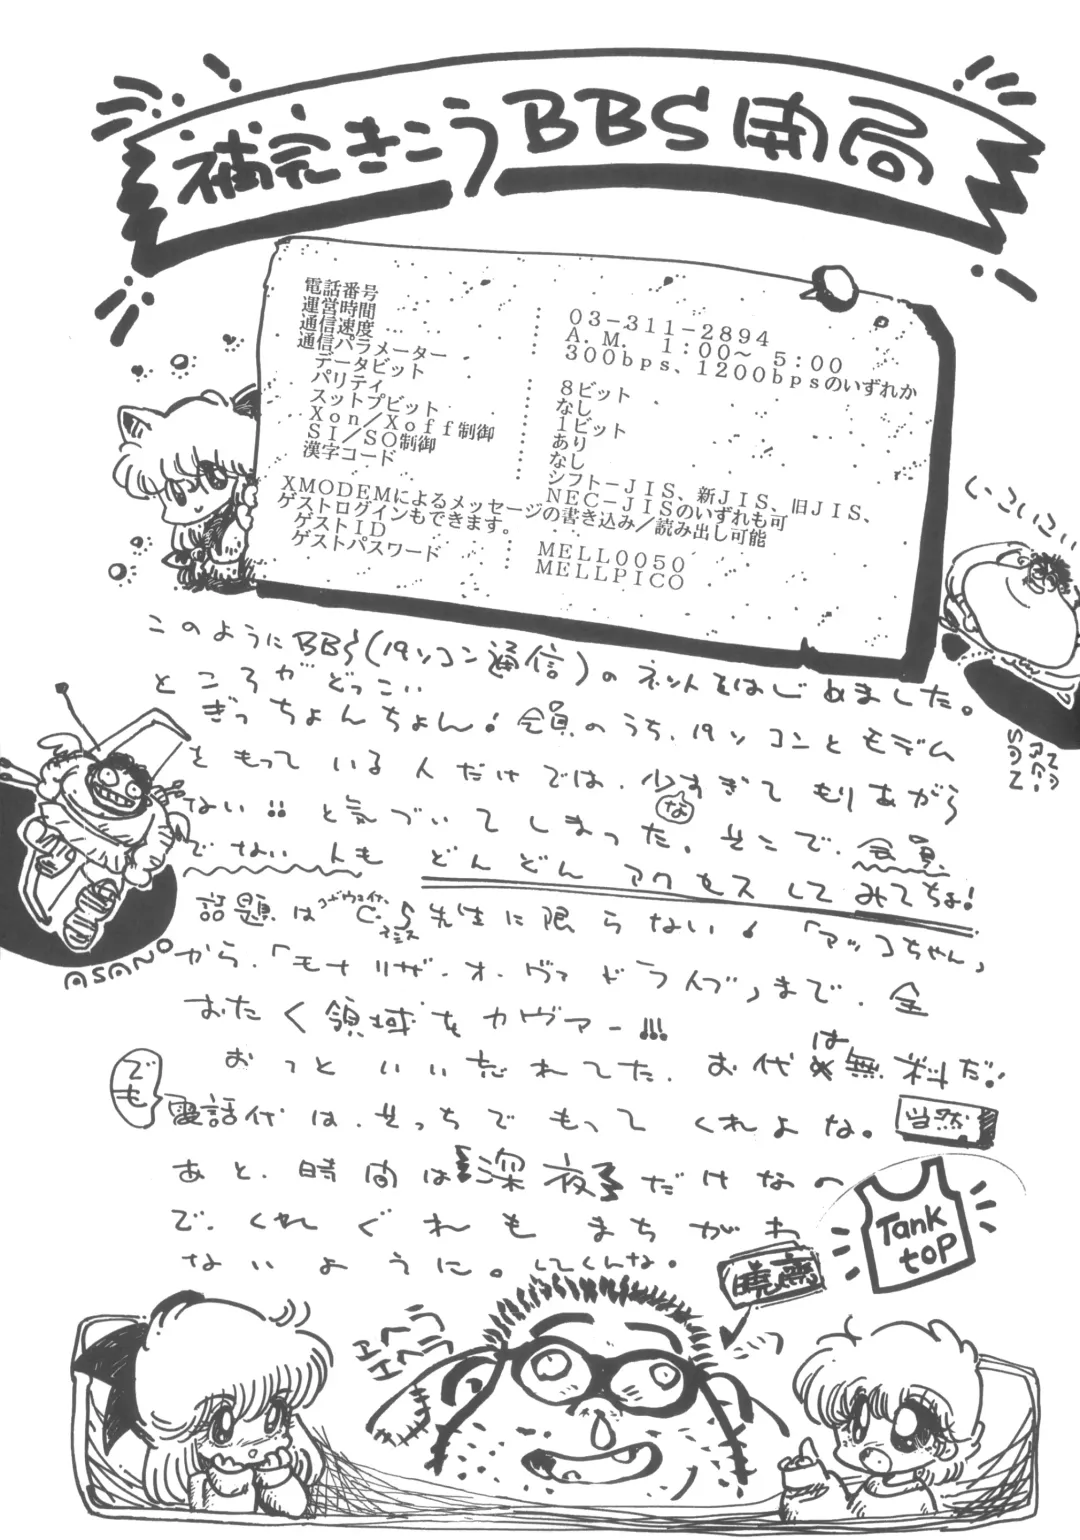 補完きこうBBS開局
電話番号 : 03-311-2894
運営時間 : A.M. 1:00~ 5:00
通信速度 : 300bps、1200bpsのいずれか
通信パラメーター
データビット : 8ビット
パリティ : なし
スットプビット : 1ビット
Xon/Xoff制御 : あり
SI/SO制御 : なし
漢字コード : シフト-JIS、新JIS、旧JIS、
NEC-JISのいずれも可
XMODEMによるメッセージの書き込み/読み出し可能
ゲストログインもできます。
ゲストID : MELL0050
ゲストパスワード : MELLPICO
いこいこ
このようにBBS(パソコン通信)のネットをはじめました。
ところがどっこい
ぎっちょんちょん!会員のうち、パソコンとモデム
をもっている人だけでは、少なすぎてもりあがら
ない!!と気づいてしまった。そこで、会員
でない人もどんどんアクセスしてみてちょ!
ASANO
話題はC.スミス先生に限らない!「アッコちゃん」
から、「モナリザ・オーヴァドライブ」まで、全
おたく領域をカヴァー!!!
おっといい忘れてた、お代は無料だ!
でも
電話代は、そっちでもってくれよな。当然
あと、時間は深夜だけなの
で、くれぐれもまちがわ
ないように。してくんな。
Tank
top
暁斎
エヘラ
エヘラ